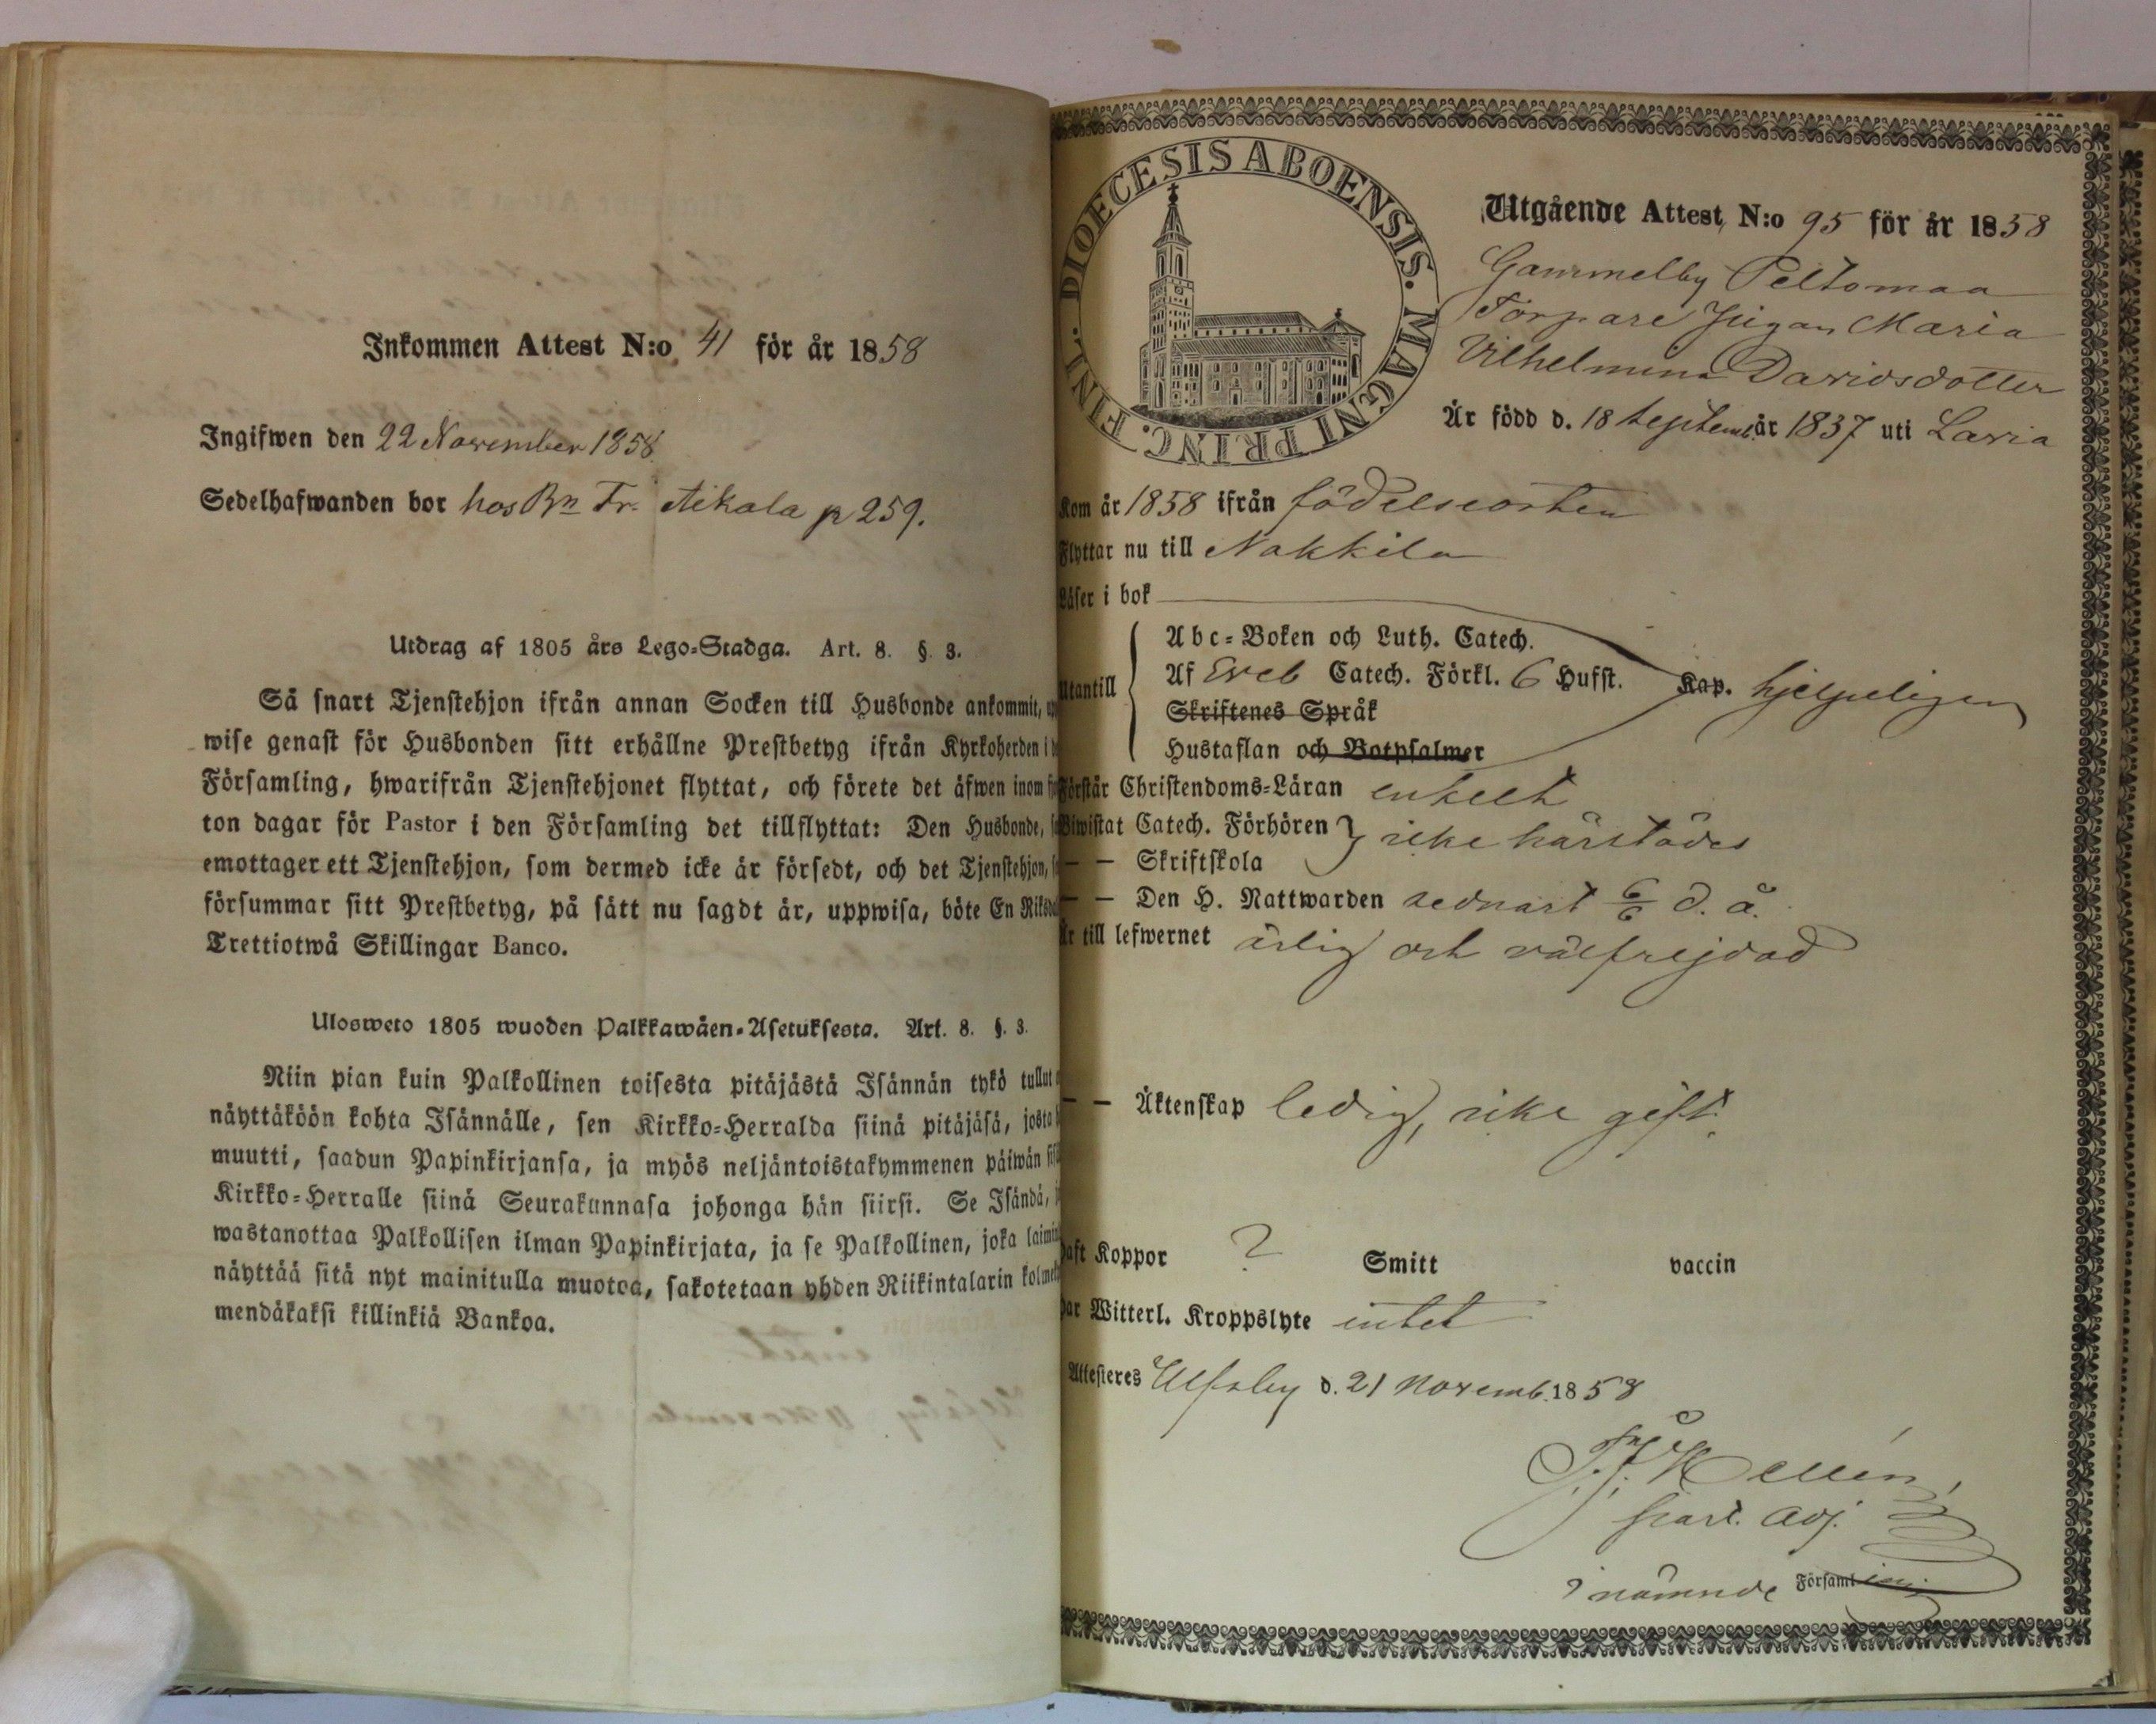 Inkommen Attest N:o 41 för år 1858
Ingifwen den 22 November 1858.
Sedelhafwanden bor hos Bn Fr. Aikala p 259.
Utdrag af 1805 års Lego-Stadga. Art. 8. §. 3.
Så snart Tjenstehjon ifrån annan Socken till Husbonde ankommit,
wise genast för Husbonden sitt erhållne Prestbetyg ifrån Kyrkoherden i
Församling, hwarifrån Tjenstehjonet flyttat, och förete det äfwen inom
ton dagar för Pastor i den Församling det tillflyttat: Den Husbonde,
emottager ett Tjenstehjon, som dermed icke är försedt, och det Tjenstehjon,
försummar sitt Prestbetyg, på sätt nu sagdt är, uppwisa, böte En
Trettiotwå Skillingar Banco.
Ulosweto 1805 wuoden Palkkawäen-Asetuksesta. Art. 8. §. 3.
Niin pian kuin Palkollinen toisesta pitäjästä Isännän tykö tullut
näyttäköön kohta Isännälle, sen Kirkko-Herralda siinä pitäjäsä, josta
muutti, saadun Papinkirjansa, ja myös neljäntoistakymmenen päiwän
Kirkko-Herralle siinä Seurakunnasa johonga hän siirsi. Se Isändä,
wastanottaa Palkollisen ilman Papinkirjata, ja se Palkollinen, joka
näyttää sitä nyt mainitulla muotoa, sakotetaan yhden Riikintalarin
mendäkaksi killinkiä Bankoa.
DIOECESIS ABOENSIS. MAGNI PRINC. FINL.
Utgående Attest, N:o 95 för år 1858
Gammelby Peltomaa
Torpare Pigan Maria
Vilhelmina Davidsdotter
Är född d. 18 Septemb. år 1837 uti Lavia
Kom år 1858 ifrån födelseorten
Flyttar nu till Nakkila
Läser i bok
Utantill
Abc-Boken och Luth. Catech.
Af Sveb Catech. Förkl. 6 Hufst. Kap. hjelpeligen
Skriftenes Språk
Hustaflan och Botpsalmer
Förstår Christendoms-Läran enkelt
Biwistat Catech. Förhören } icke härstädes
— — Skriftskola
— — Den H. Nattwarden sednast 6/6 d. å.
Är till lefwernet ärlig och välfrejdad
— — Äktenskap ledig, icke gift.
Haft Koppor ? Smitt vaccin
Har Witterl. Kroppslyte intet
Attesteres Ulfsby d. 21 Novemb. 1858
adj.
i nämnde Församling